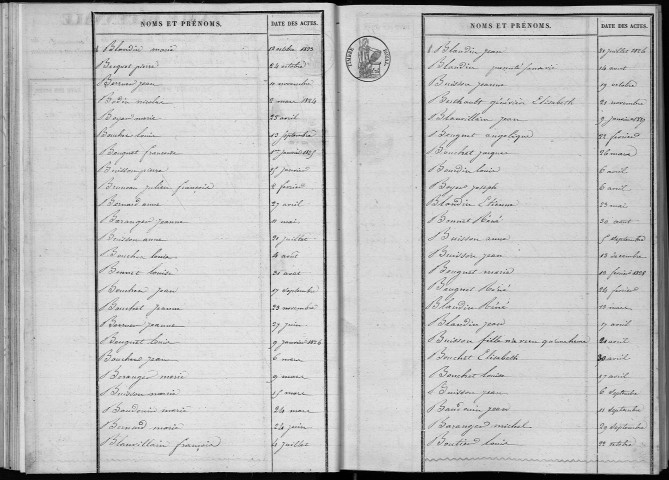 NOMS ET PRÉNOMS. DATE DES ACTES.
Blandin marie 18 octobre 1823
Bosquet pierre 24 octobre
Bernier jean 11 novembre
Bodin nicolas 2 mars 1824
Boyer marie 25 avril
Boucher louise 13 septembre
Bouquet francoise 1er janvier 1825
Buisson pierre 25 janvier
Bruneau julien francois 2 fevrier
Bernard anne 27 avril
Baranger jeanne 11 mai
Buisson anne 20 juillet
Boucher louis 4 aout
Bonnet louise 30 aout
Boucheau jean 17 septembre
Bouchet jeanne 23 novembre
Bernier jeanne 29 juin
Bouquet louis 9 janvier 1826
Boucher jean 6 mars
Baranger marie 9 mars
Buisson marie 15 mars
Baudouin marie 24 mars
Bernard marie 24 juin
Blauvillain françois 4 juillet
NOMS ET PRÉNOMS. DATE DES ACTES.
TIMBRE ROYAL
Blandin jean 20 juillet 1826
Blandin 14 aout
Buisson jeanne 19 octobre
Berthault Elisabeth 20 novembre
Blauvillain jean 9 janvier 1827
Bouquet angelique 22 fevrier
Bouchet jacques 26 mars
Boudin louis 6 avril
Boyer joseph 6 avril
Blandin Etienne 23 mai
Bonnet Réné 20 aout
Buisson anne 5 septembre
Buisson jean 13 decembre
Bouquet marie 12 fevrier 1828
Bouquet Réné 24 fevrier
Blandin Réné 13 mars
Blandin jean 17 avril
Buisson fille 20 avril
Bouchet Elisabeth 30 avril
Bouchet louise 17 avril
Buisson jean 6 septembre
Baudouin jean 11 septembre
Baranger michel 29 septembre
Boutin louis 22 octobre